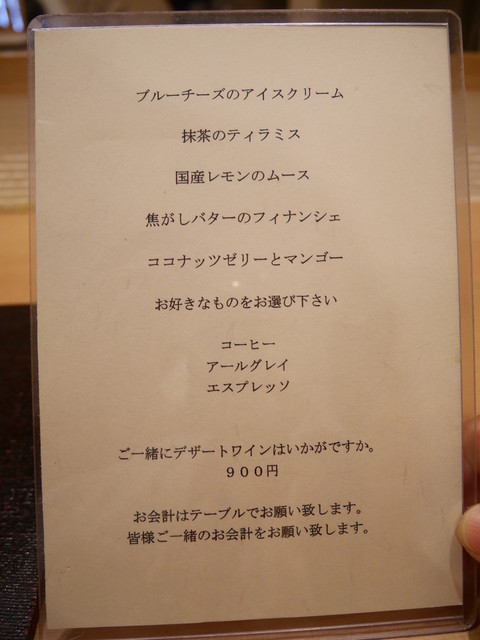 ブルーチーズのアイスクリーム
抹茶のティラミス
国産レモンのムース
焦がしバターのフィナンシェ
ココナッツゼリーとマンゴー
お好きなものをお選び下さい
コーヒー
アールグレイ
エスプレッソ
ご一緒にデザートワインはいかがですか。
９００円
お会計はテーブルでお願い致します。
皆様ご一緒のお会計をお願い致します。